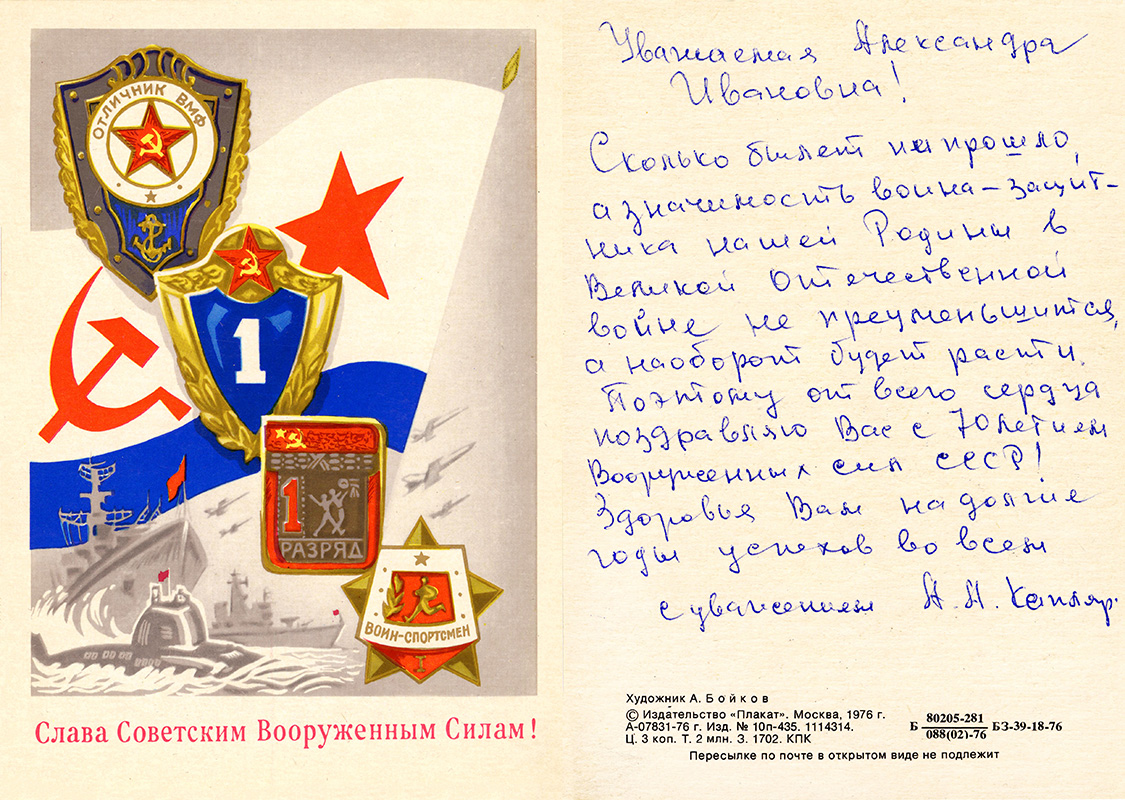 ОТЛИЧНИК ВМФ
1
1
РАЗРЯД
ВОИН-СПОРТСМЕН
I
Слава Советским Вооруженным Силам!
Уважаемая Александра
Ивановна!
Сколько бы лет ни прошло,
а значимость воина-защит-
ника нашей Родины в
Великой Отечественной
войне не преуменьшится,
а наоборот будет расти.
Поэтому от всего сердца
поздравляю Вас с 70летием
Вооруженных сил СССР!
Здоровья Вам на долгие
годы успехов во всем
с уважением А. А. Капляр.
Художник А. Бойков
© Издательство «Плакат». Москва, 1976 г.
А-07831-76 г. Изд. № 10п-435. 1114314.
Ц. 3 коп. Т. 2 млн. З. 1702. КПК
Б 80205-281 БЗ-39-18-76
088(02)-76
Пересылке по почте в открытом виде не подлежит